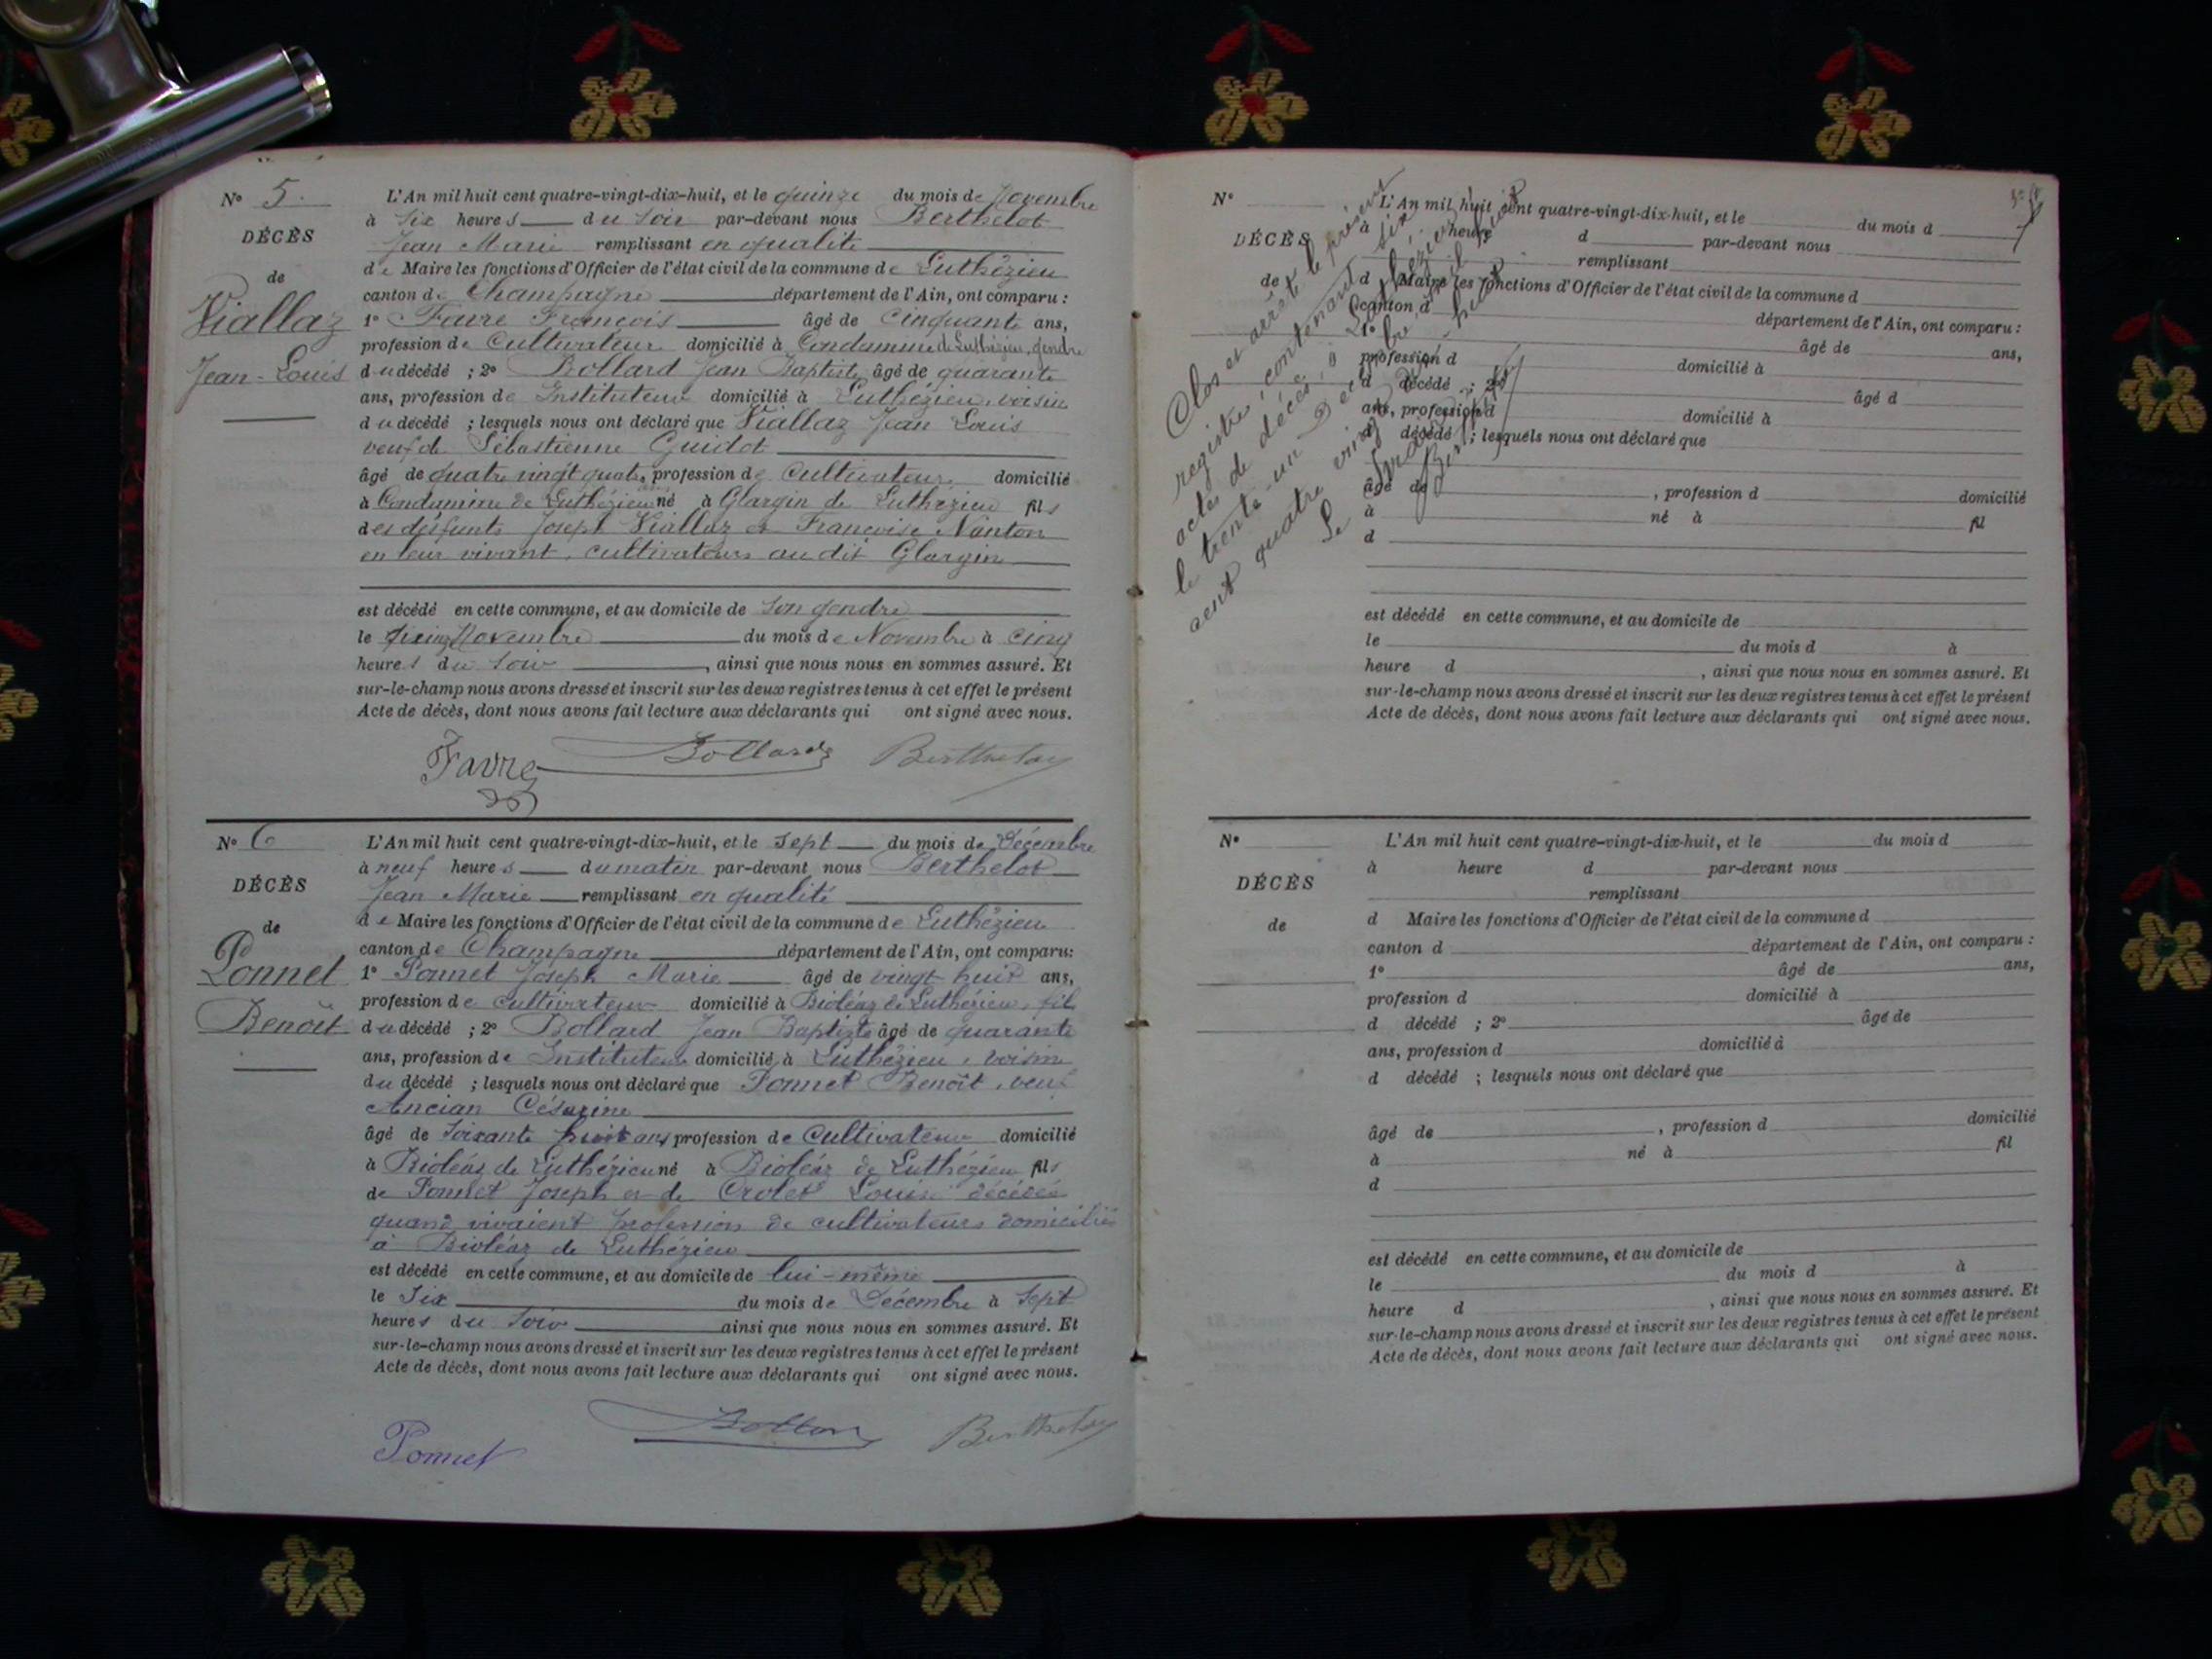 N° 5.
DÉCÈS
de
Viallaz
Jean-Louis
L'An mil huit cent quatre-vingt-dix-huit, et le quinze du mois de Novembre
à six heures du soir par-devant nous Berthelot
Jean Marie remplissant en qualité
de Maire les fonctions d'Officier de l'état civil de la commune de Luthézieu
canton de Champagne département de l'Ain, ont comparu :
1° Favre François âgé de cinquante ans,
profession de Cultivateur domicilié à Condamine de Luthézieu, gendre
du décédé ; 2° Bollard Jean Baptiste âgé de quarante
ans, profession de Instituteur domicilié à Luthézieu, voisin
du décédé ; lesquels nous ont déclaré que Viallaz Jean Louis
veuf de Sébastienne Guidot
âgé de quatre vingt quatre profession de Cultivateur domicilié
à Condamine de Luthézieu né à Glargin de Luthézieu fils
des défunts Joseph Viallaz et Françoise Nanton
en leur vivant, cultivateurs au dit Glargin
est décédé en cette commune, et au domicile de son gendre
le Novembre du mois de Novembre à cinq
heures du soir , ainsi que nous nous en sommes assuré. Et
sur-le-champ nous avons dressé et inscrit sur les deux registres tenus à cet effet le présent
Acte de décès, dont nous avons fait lecture aux déclarants qui ont signé avec nous.
Favre Bollard Berthelot
N° 6
DÉCÈS
de
Ponnet
Benoît
L'An mil huit cent quatre-vingt-dix-huit, et le sept du mois de Décembre
à neuf heures du matin par-devant nous Berthelot
Jean Marie remplissant en qualité
de Maire les fonctions d'Officier de l'état civil de la commune de Luthézieu
canton de Champagne département de l'Ain, ont comparu:
1° Ponnet Joseph Marie âgé de vingt huit ans,
profession de cultivateur domicilié à Bioléaz de Luthézieu, fils
du décédé ; 2° Bollard Jean Baptiste âgé de quarante
ans, profession de Instituteur domicilié à Luthézieu, voisin
du décédé ; lesquels nous ont déclaré que Ponnet Benoît, veuf
Ancian Césarine
âgé de soixante huit ans, profession de Cultivateur domicilié
à Bioléaz de Luthézieu né à Bioléaz de Luthézieu fils
de Ponnet Joseph et de Crolet Louise décédés
quand vivaient profession de cultivateurs domiciliés
à Bioléaz de Luthézieu
est décédé en cette commune, et au domicile de lui-même
le six du mois de Décembre à sept
heures du soir ainsi que nous nous en sommes assuré. Et
sur-le-champ nous avons dressé et inscrit sur les deux registres tenus à cet effet le présent
Acte de décès, dont nous avons fait lecture aux déclarants qui ont signé avec nous.
Ponnet Bollard Berthelot
N°
DÉCÈS
de
L'An mil huit cent quatre-vingt-dix-huit, et le du mois d
à heure d par-devant nous
remplissant
d Maire les fonctions d'Officier de l'état civil de la commune d
canton d département de l'Ain, ont comparu :
1° âgé de ans,
profession d domicilié à
d décédé ; 2° âgé d
ans, profession d domicilié à
d décédé ; lesquels nous ont déclaré que
âgé de , profession d domicilié
à né à fil
d
est décédé en cette commune, et au domicile de
le du mois d à
heure d , ainsi que nous nous en sommes assuré. Et
sur-le-champ nous avons dressé et inscrit sur les deux registres tenus à cet effet le présent
Acte de décès, dont nous avons fait lecture aux déclarants qui ont signé avec nous.
Clos et arrêté le présent
registre, contenant six
actes de décès, à Luthézieu
le trente-un Décembre mil
cent quatre vingt dix-huit
Le
N°
DÉCÈS
de
L'An mil huit cent quatre-vingt-dix-huit, et le du mois d
à heure d par-devant nous
remplissant
d Maire les fonctions d'Officier de l'état civil de la commune d
canton d département de l'Ain, ont comparu :
1° âgé de ans,
profession d domicilié à
d décédé ; 2° âgé de
ans, profession d domicilié à
d décédé ; lesquels nous ont déclaré que
âgé de , profession d domicilié
à né à fil
d
est décédé en cette commune, et au domicile de
le du mois d à
heure d , ainsi que nous nous en sommes assuré. Et
sur-le-champ nous avons dressé et inscrit sur les deux registres tenus à cet effet le présent
Acte de décès, dont nous avons fait lecture aux déclarants qui ont signé avec nous.